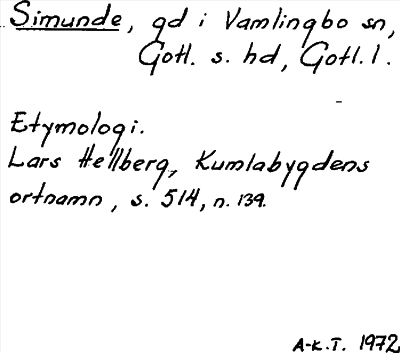 Simunde, gd i Vamlingbo sn,
Gotl. s. hd, Gotl. l.
Etymologi.
Lars Hellberg, Kumlabygdens
ortnamn, s. 514, n. 139.
A-K.T. 1972